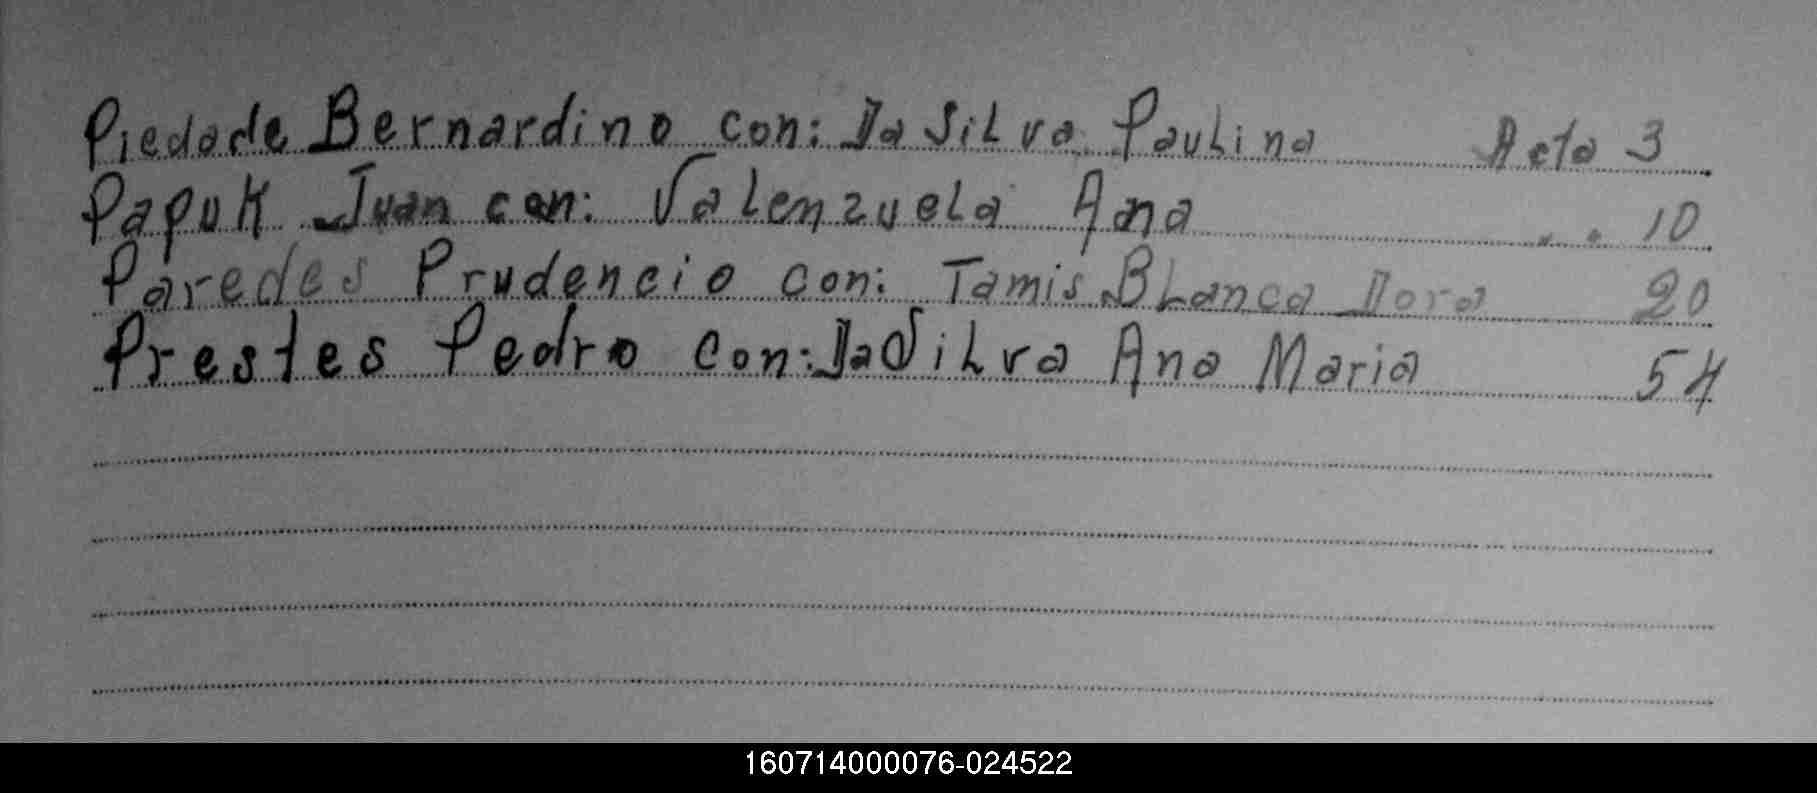 Piedade Bernardino con: Da Silva Paulina Acta 3
Papuk Juan con: Valenzuela Ana " " 10
Paredes Prudencio con: Tamis Blanca Dora 20
Prestes Pedro con: Da Silva Ana Maria 54
160714000076-024522